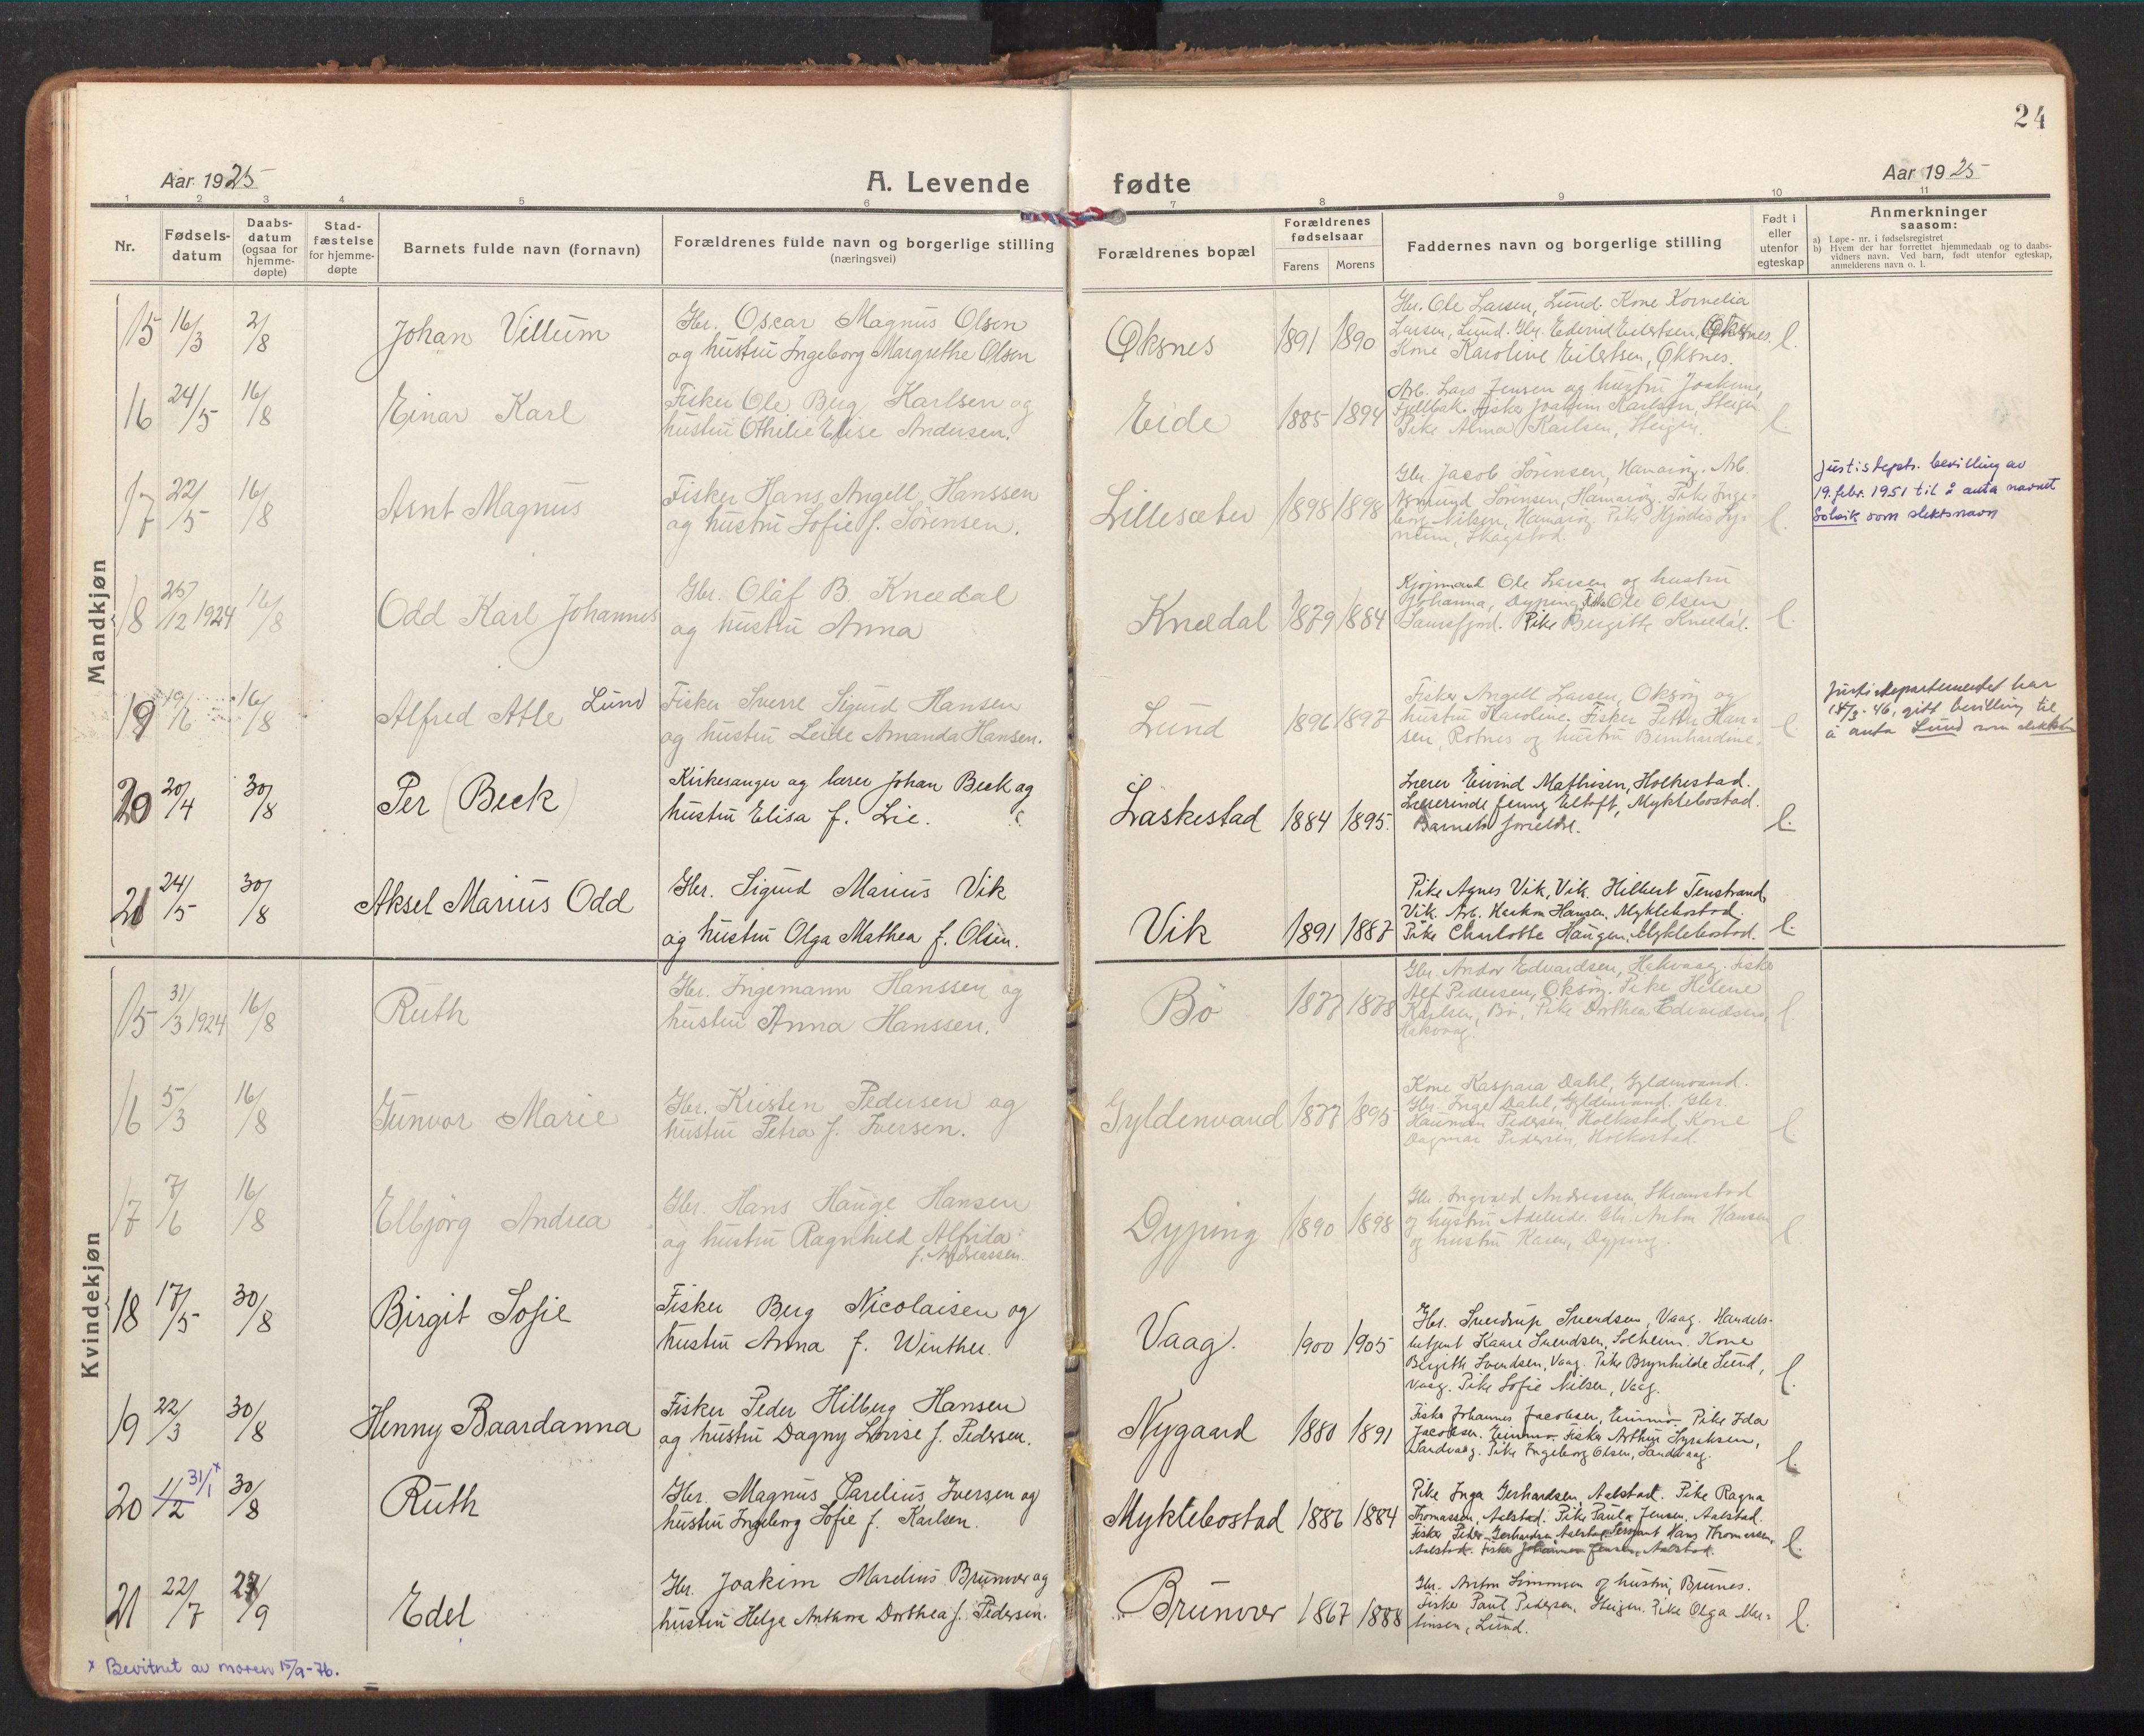 24
Aar 1925
A. Levende
fødte
Aar 1925
1 2 3 4 5 6 7 8 9 10 11
Nr.
Fødsels-
datum
Daabs-
datum
(ogsaa for
hjemme-
døpte)
Stad-
fæstelse
for hjemme-
døpte
Barnets fulde navn (fornavn)
Forældrenes fulde navn og borgerlige stilling
(næringsvei)
Forældrenes bopæl
Forældrenes
fødselsaar
Farens Morens
Faddernes navn og borgerlige stilling
Født i
eller
utenfor
egteskap
Anmerkninger
saasom:
a) Løpe-nr. i fødselsregistret
b) Hvem der har forrettet hjemmedaab og to daabs-
vidners navn. Ved barn, født utenfor egteskap,
anmelderens navn o. l.
Mandkjøn
15 16/3 2/8 Johan Villum
Gbr. Oscar Magnus Olsen
og hustru Ingeborg Margrethe Olsen
Øksnes 1891 1890
Gbr. Ole Larsen, Lund. Kone Kornelia
Larsen, Lund. Gbr. Edvind Eilertsen, Øksnes.
Kone Karoline Eilertsen, Øksnes.
l.
16 24/5 16/8 Einar Karl
Fisker Ole Berg Karlsen og
hustru Othilie Elise Andersen.
Eide 1885 1894
Arb. Lars Jensen og hustru
Fisker Joakim Karlsen, Steigen.
Pike Alma Karlsen, Steigen.
l.
17 22/5 16/8 Arnt Magnus
Fisker Hans Angell Hanssen
og hustru Sofie f. Sørensen.
Lillesæter 1898 1898
Gbr. Jacob Sørensen, Hamarøy. Arb.
Asmund Sørensen, Hamarøy. Pike Inge-
borg Nilsen, Hamarøy. Pike Hjørdis
Skagstad.
l.
Justisdepts. bevilling av
19. febr. 1951 til å anta navnet
Solvik som slektsnavn
18 25/12 1924 16/8 Odd Karl Johannes
Gbr. Olaf B. Knædal
og hustru Anna
Knædal 1879 1884
Kjøpmand Ole Larsen og hustru
Johanna, Dyping. Ole Olsen,
Laursfjord. Pike Birgitte Knædal.
l.
19 19/6 16/8 Alfred Atle Lund
Fisker Sverre Sigurd Hansen
og hustru Leide Amanda Hansen.
Lund 1896 1897
Fisker Angell Larsen, Oksøy og
hustru Karoline. Fisker Petter Han-
sen, Rotnes og hustru Bernhardine.
l.
Justisdepartementet har
14/3-46, gitt bevilling til
å anta Lund som slektsn.
20 20/4 30/8 Per (Beck)
Kirkesanger og lærer Johan Beck og
hustru Elisa f. Lie.
Laskestad 1884 1895.
Lærer Eivind Mathisen, Holkestad.
Lærerinde Jenny Eltoft, Myklebostad.
Barnets forældre.
l.
21 24/5 30/8 Aksel Marius Odd
Gbr. Sigurd Marius Vik
og hustru Olga Mathea f. Olsen.
Vik 1891 1887
Pike Agnes Vik, Vik. Hilbert Tenstrand,
Vik. Arb. Haakon Hansen, Myklebostad.
Pike Charlotte Haugen, Myklebostad.
l.
Kvindekjøn
15 31/3 1924 16/8 Ruth
Gbr. Ingemann Hanssen og
hustru Anna Hanssen.
Bø 1877 1878
Gbr. Andor Edvardsen, Hakvaag. Fisker
Alf Pedersen, Oksøy. Pike Helene
Karlsen, Bø. Pike Dorthea Edvardsen,
Hakvaag.
l.
16 5/3 16/8 Gunvor Marie
Gbr. Kristen Pedersen og
hustru Petra f. Iversen.
Gyldenvand 1877 1895
Kone Kaspara Dahl, Gyldenvand.
Gbr. Inge Dahl, Gyldenvand. Gbr.
Hauman Pedersen, Holkestad, Kone
Dagmar Pedersen, Holkestad.
l.
17 7/6 16/8 Elbjørg Andrea
Gbr. Hans Hauge Hansen
og hustru Ragnhild Alfrida
f. Andreassen.
Dyping 1890 1898
Gbr. Ingvald Andreassen, Skramstad
og hustru Adeleide. Gbr. Anton Hansen
og hustru Karen, Dyping.
l.
18 17/5 30/8 Birgit Sofie
Fisker Berg Nicolaisen og
hustru Anna f. Winther.
Vaag. 1900 1905
Gbr. Sverdrup Svendsen, Vaag. Handels-
betjent Kaare Svendsen, Solheim. Kone
Birgith Svendsen, Vaag. Pike Brynhilde Lund,
Vaag. Pike Sofie Nilsen, Vaag.
l.
19 22/3 30/8 Henny Baardanna
Fisker Peder Hilberg Hansen
og hustru Dagny Lovise f. Pedersen.
Nygaard 1880 1891
Fisker Johannes Jacobsen, Pike Ida
Jacobsen. Fisker Arthur Syraksen,
Sandvaag. Pike Ingeborg Olsen, Sandvaag.
l.
20 1/2 31/1 x 30/8 Ruth
Gbr. Magnus Parelius Iversen og
hustru Ingeborg Sofie f. Karlsen.
Myklebostad 1886 1884
Pike Inga Gerhardsen, Aalstad. Pike Ragna
Thomassen, Aalstad. Pike Paula Jensen, Aalstad.
Fisker Peder Gerhardsen Aalstad Sersjant Hans Thomassen,
Aalstad. Fisker Johannes Jensen, Aalstad.
l.
21 22/7 27/9 Edel
Gbr. Joakim Marelius Brunvær og
hustru Helga Antkora Dorthea f. Pedersen.
Brunvær 1867 1888
Gbr. Anton Simonsen og hustru, Brunes.
Fisker Paul Pedersen, Steigen. Pike Olga Mar-
tinsen, Lund.
l.
x Bevitnet av moren 15/9-76.